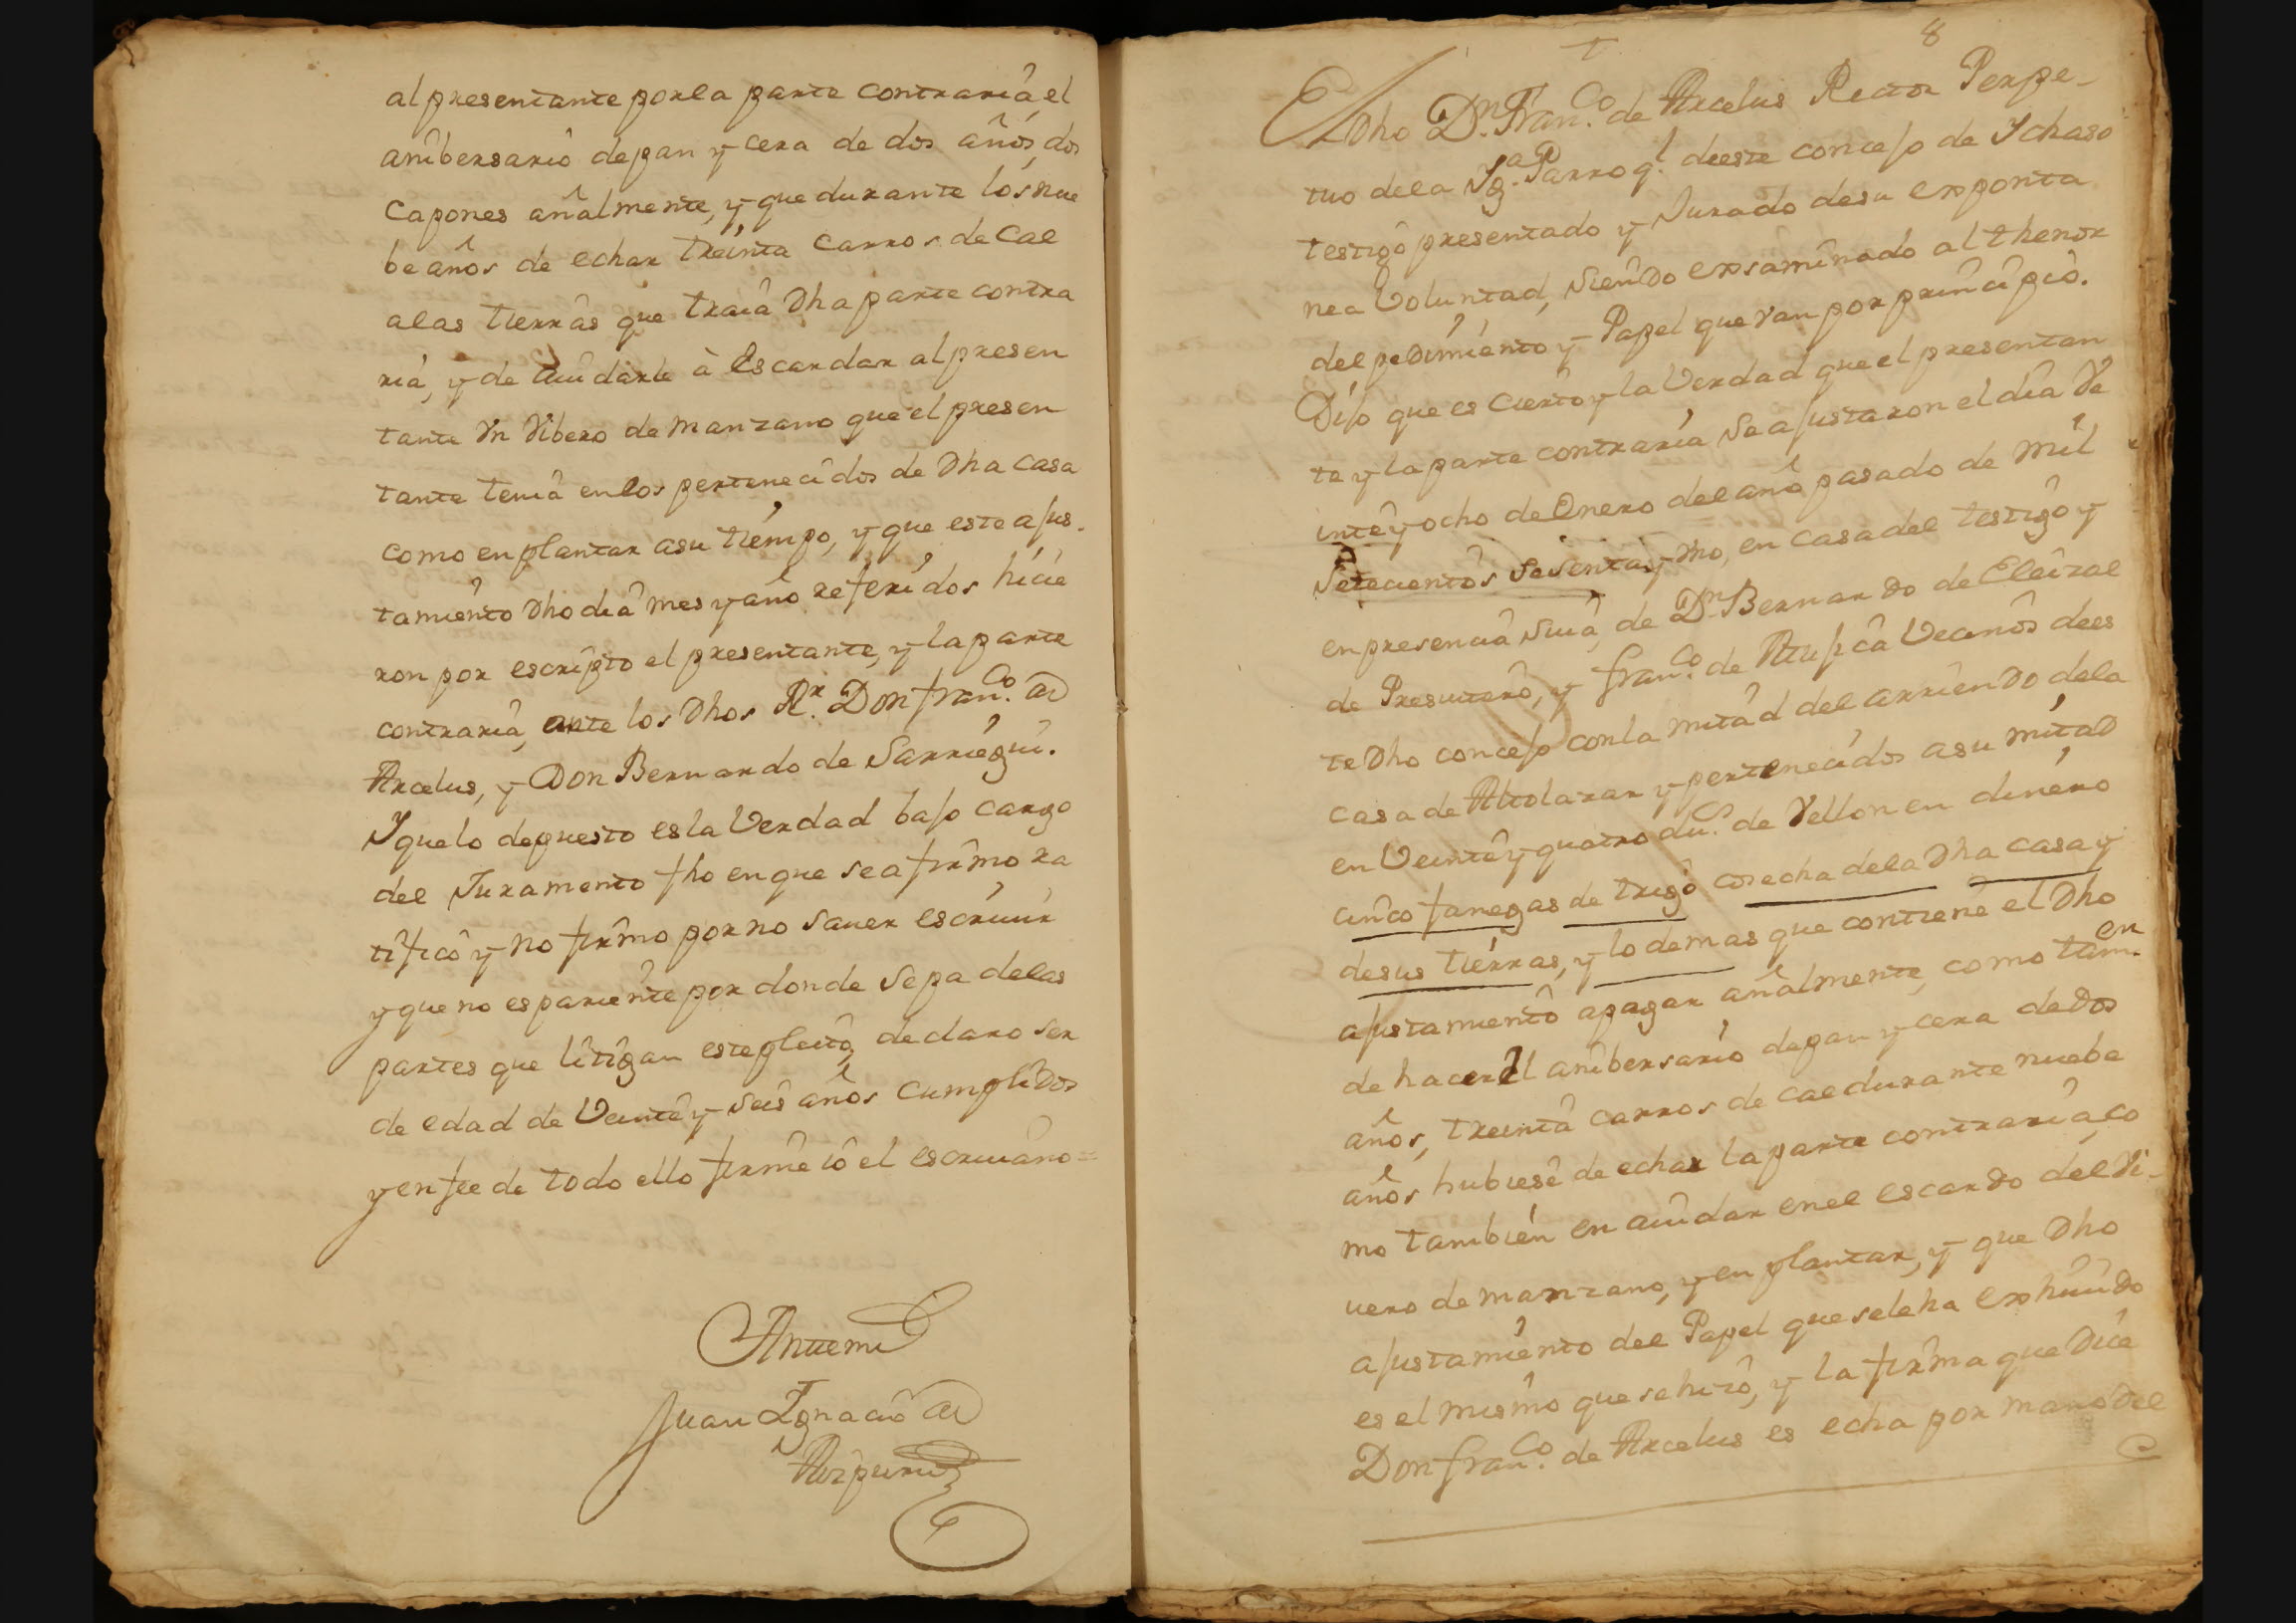 al presentante por la parte contraria el
anibersario de pan y cera de dos años, dos
Capones añalmente, y que durante los nue
be años de echar treinta carros de Cal
a las tierras que traia Dha parte contra
ria, y de aiudarle à Escardar al presen
tante Vn Vibero de manzano que el presen
tante tenia en los pertenecidos de Dha casa
como en plantar a su tiempo, y que este ajus-
tamiento Dho dia mes y año referidos hicie
ron por escripto el presentante, y la parte
contraria, ante los Dhos Rr. Don fran.co de
Arcelus, y Don Bernardo de Sarriegui.
Y que lo depuesto es la Verdad bajo cargo
del Juramento fho en que se afirmo ra
tifico y no firmo por no saver escriuir
y que no es pariente por donde sepa de las
partes que litigan este pleito, declaro ser
de edad de Veinte y seis años cumplidos
y en fee de todo ello firme io el escriuano =
Antemi
Juan Ignacio de
Aizpuru
8
El Dho Dn. Fran.co de Arcelus Rector Perpe-
tuo de la Ig.a Parroq.l de este concejo de Ychaso
testigo presentado y Jurado de su exponta
nea Voluntad, siendo exsaminado al thenor
del pedimiento y Papel que van por principio.
Dijo que es cierto y la Verdad que el presentan
te y la parte contraria se ajustaron el dia Ve
inte y ocho de Enero del año pasado de mil
Setecientos sesenta y vno, en casa del testigo y
en presencia suia, de Dn. Bernardo de Eleizal
de Presuitero, y fran.co de Vecinos de es
te Dho concejo con la mitad del arriendo de la
casa de Altolarar y pertenecidos a su mitad
en Veinte y quatro du.s de Vellon en dinero
cinco fanegas de trigo cosecha de la Dha casa y
de sus tierras, y lo demas que contiene el Dho
ajustamiento a pagar añalmente, como tam.en
de hacer el anibersario de pan y cera de dos
años, treinta carros de cal durante nuebe
años hubiese de echar la parte contraria, co
mo tambien en aiudar en el escardo del Vi-
uero de manzano, y en plantar, y que Dho
ajustamiento del Papel que se le ha exhiuido
es el mismo que se hizo, y la firma que Dice
Don fran.co de Arcelus es echa por mano del